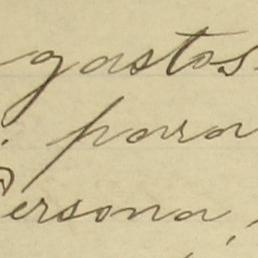 gastos
para
Persona,